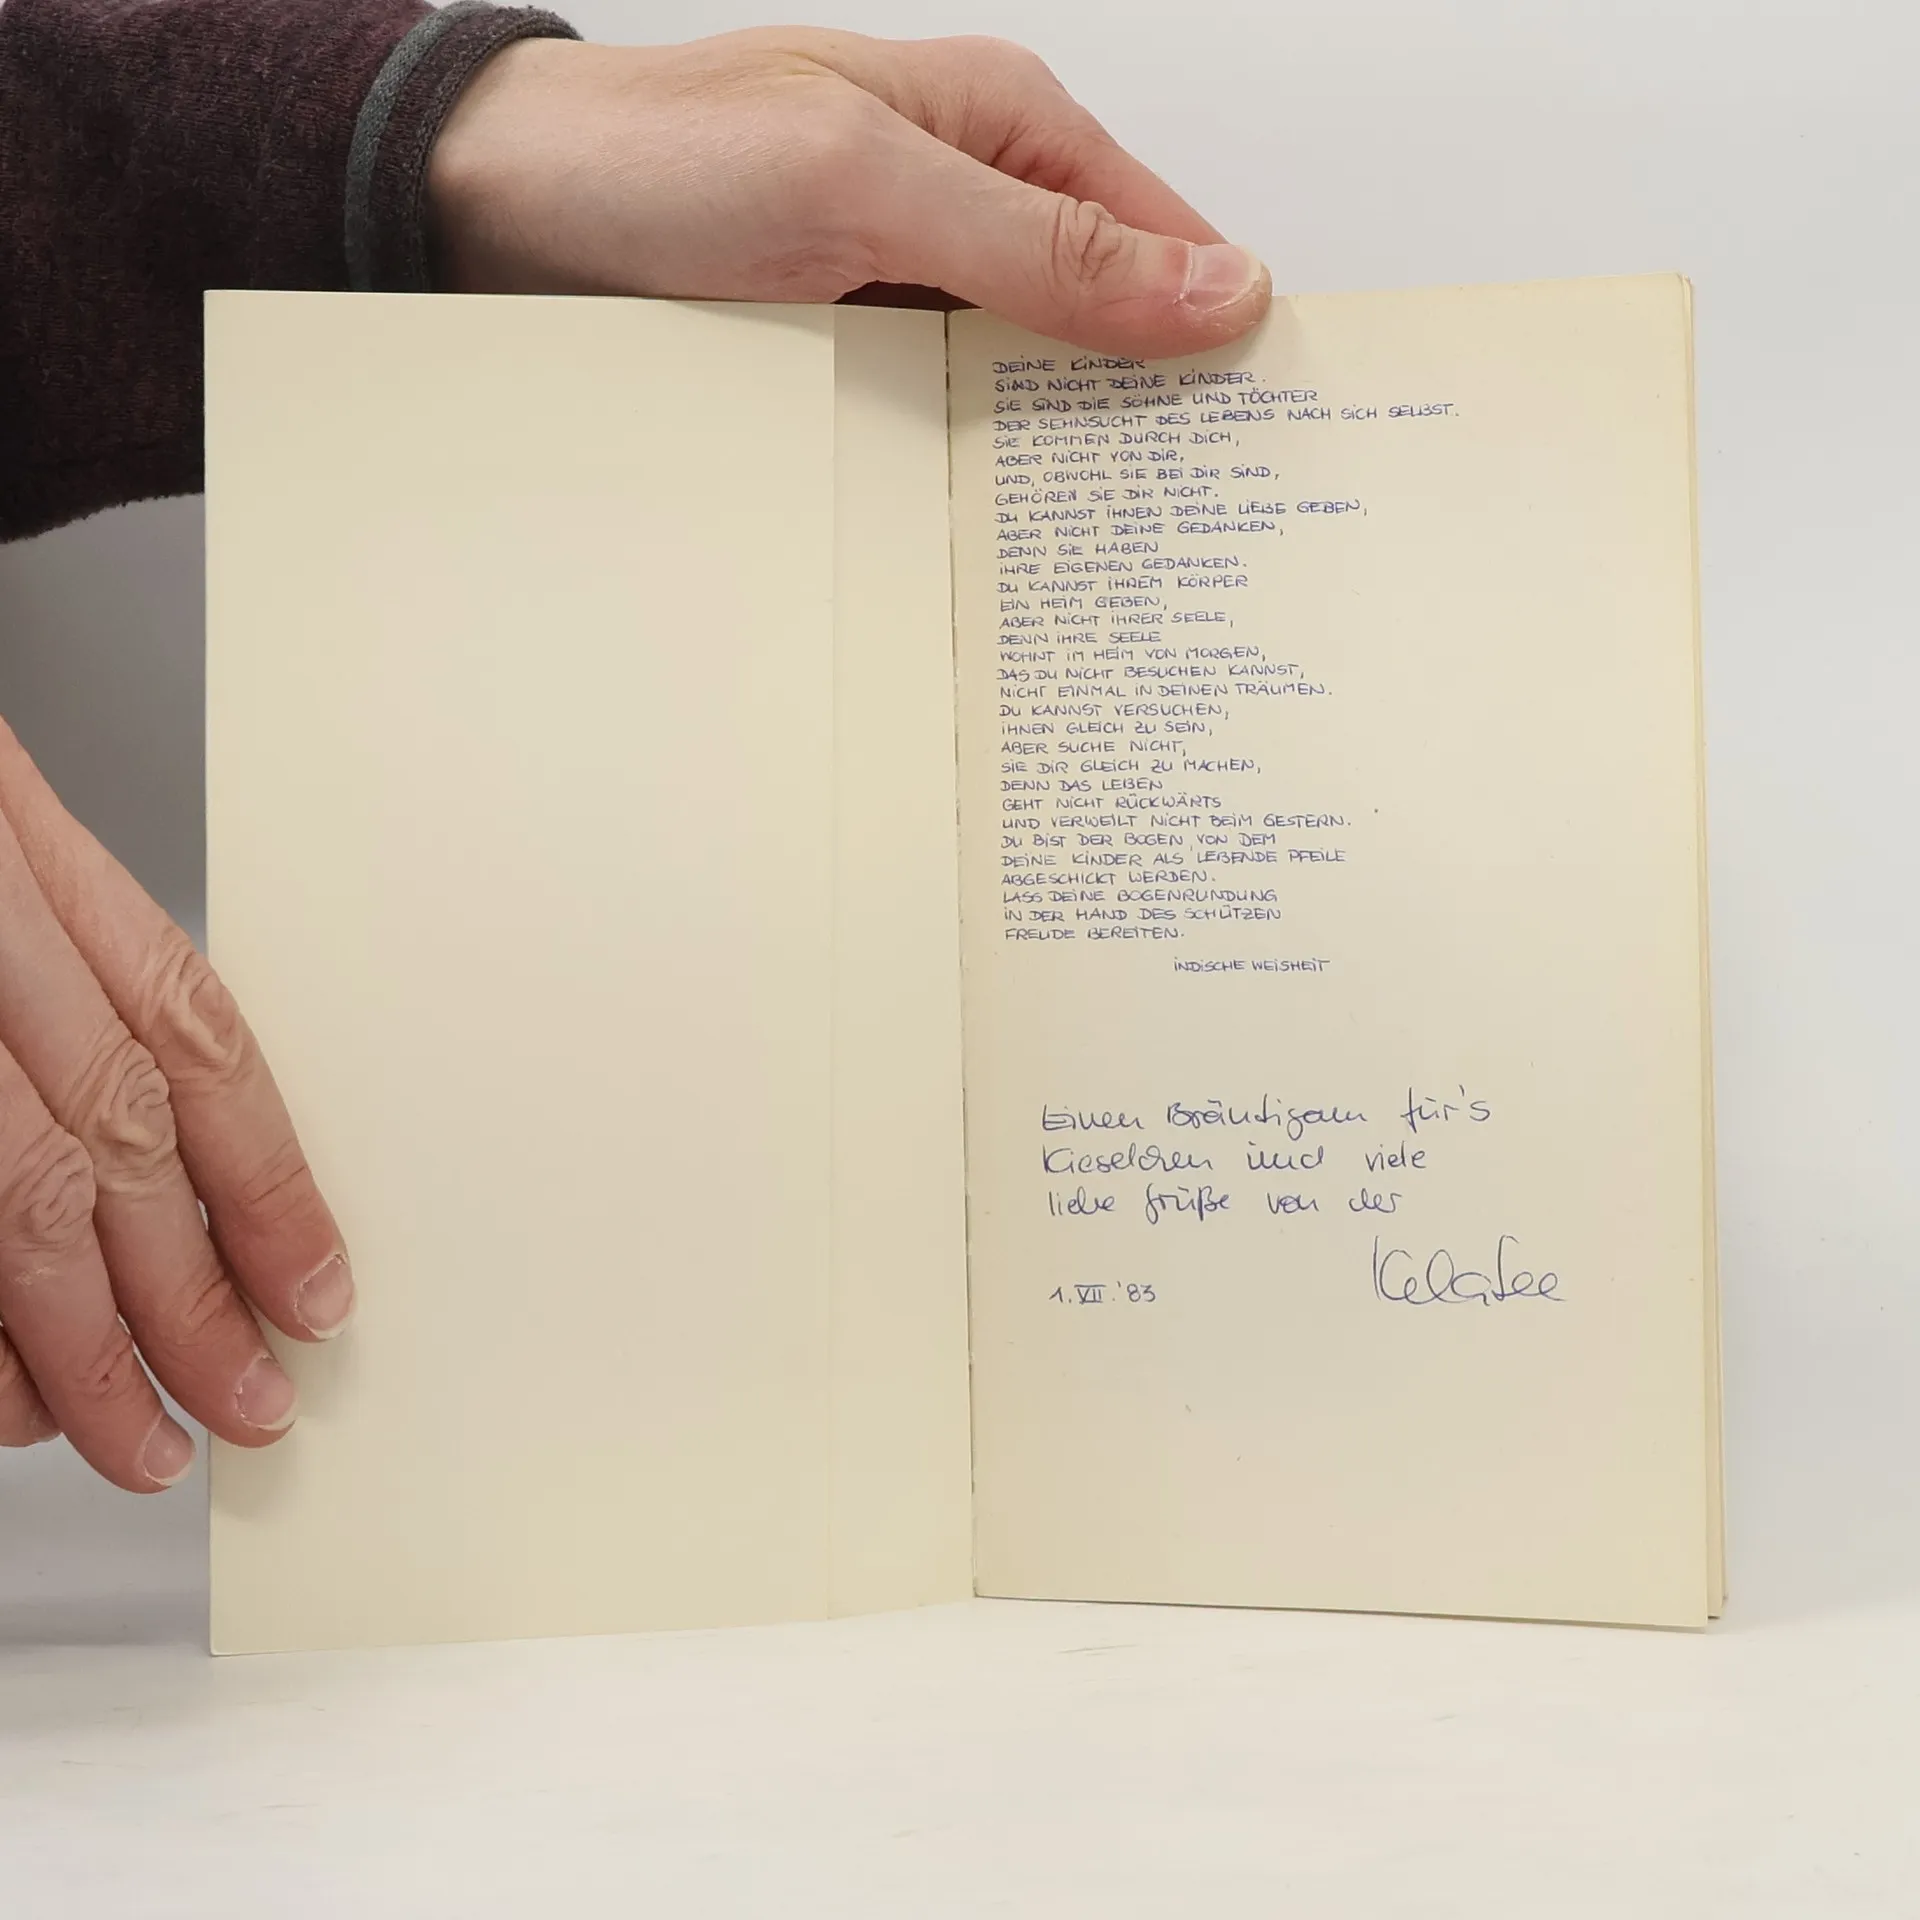 DEINE KINDER
SIND NICHT DEINE KINDER.
SIE SIND DIE SÖHNE UND TÖCHTER
DER SEHNSUCHT DES LEBENS NACH SICH SELBST.
SIE KOMMEN DURCH DICH,
ABER NICHT VON DIR,
UND, OBWOHL SIE BEI DIR SIND,
GEHÖREN SIE DIR NICHT.
DU KANNST IHNEN DEINE LIEBE GEBEN,
ABER NICHT DEINE GEDANKEN,
DENN SIE HABEN
IHRE EIGENEN GEDANKEN.
DU KANNST IHREM KÖRPER
EIN HEIM GEBEN,
ABER NICHT IHRER SEELE,
DENN IHRE SEELE
WOHNT IM HEIM VON MORGEN,
DAS DU NICHT BESUCHEN KANNST,
NICHT EINMAL IN DEINEN TRÄUMEN.
DU KANNST VERSUCHEN,
IHNEN GLEICH ZU SEIN,
ABER SUCHE NICHT,
SIE DIR GLEICH ZU MACHEN,
DENN DAS LEBEN
GEHT NICHT RÜCKWÄRTS
UND VERWEILT NICHT BEIM GESTERN.
DU BIST DER BOGEN, VON DEM
DEINE KINDER ALS LEBENDE PFEILE
ABGESCHICKT WERDEN.
LASS DEINE BOGENRUNDUNG
IN DER HAND DES SCHÜTZEN
FREUDE BEREITEN.
INDISCHE WEISHEIT
Einen Bräutigam für's
Kieselchen und viele
liebe Grüße von der
1. VII. '83